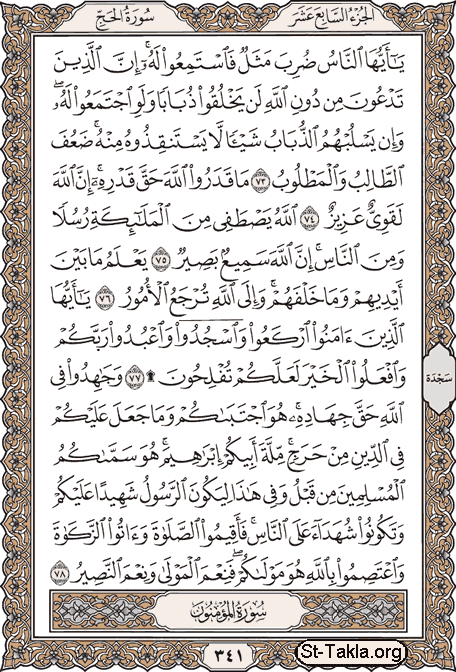 الجزء السابع عشر
سورة الحج
يَـٰٓأَيُّهَا ٱلنَّاسُ ضُرِبَ مَثَلٌ فَٱسْتَمِعُوا۟ لَهُۥٓ ۚ إِنَّ ٱلَّذِينَ
تَدْعُونَ مِن دُونِ ٱللَّهِ لَن يَخْلُقُوا۟ ذُبَابًا وَلَوِ ٱجْتَمَعُوا۟ لَهُۥ ۖ
وَإِن يَسْلُبْهُمُ ٱلذُّبَابُ شَيْـًٔا لَّا يَسْتَنقِذُوهُ مِنْهُ ۚ ضَعُفَ
ٱلطَّالِبُ وَٱلْمَطْلُوبُ ٧٣ مَا قَدَرُوا۟ ٱللَّهَ حَقَّ قَدْرِهِۦٓ ۗ إِنَّ ٱللَّهَ
لَقَوِىٌّ عَزِيزٌ ٧٤ ٱللَّهُ يَصْطَفِى مِنَ ٱلْمَلَـٰٓئِكَةِ رُسُلًا
وَمِنَ ٱلنَّاسِ ۚ إِنَّ ٱللَّهَ سَمِيعٌۢ بَصِيرٌ ٧٥ يَعْلَمُ مَا بَيْنَ
أَيْدِيهِمْ وَمَا خَلْفَهُمْ ۗ وَإِلَى ٱللَّهِ تُرْجَعُ ٱلْأُمُورُ ٧٦ يَـٰٓأَيُّهَا
ٱلَّذِينَ ءَامَنُوا۟ ٱرْكَعُوا۟ وَٱسْجُدُوا۟ وَٱعْبُدُوا۟ رَبَّكُمْ
وَٱفْعَلُوا۟ ٱلْخَيْرَ لَعَلَّكُمْ تُفْلِحُونَ ۩ ٧٧ وَجَـٰهِدُوا۟ فِى
سجدة
ٱللَّهِ حَقَّ جِهَادِهِۦ ۚ هُوَ ٱجْتَبَىٰكُمْ وَمَا جَعَلَ عَلَيْكُمْ
فِى ٱلدِّينِ مِنْ حَرَجٍ ۚ مِّلَّةَ أَبِيكُمْ إِبْرَٰهِيمَ ۚ هُوَ سَمَّىٰكُمُ
ٱلْمُسْلِمِينَ مِن قَبْلُ وَفِى هَـٰذَا لِيَكُونَ ٱلرَّسُولُ شَهِيدًا عَلَيْكُمْ
وَتَكُونُوا۟ شُهَدَآءَ عَلَى ٱلنَّاسِ ۚ فَأَقِيمُوا۟ ٱلصَّلَوٰةَ وَءَاتُوا۟ ٱلزَّكَوٰةَ
وَٱعْتَصِمُوا۟ بِٱللَّهِ هُوَ مَوْلَىٰكُمْ ۖ فَنِعْمَ ٱلْمَوْلَىٰ وَنِعْمَ ٱلنَّصِيرُ ٧٨
سورة المؤمنون
٣٤١
St-Takla.org